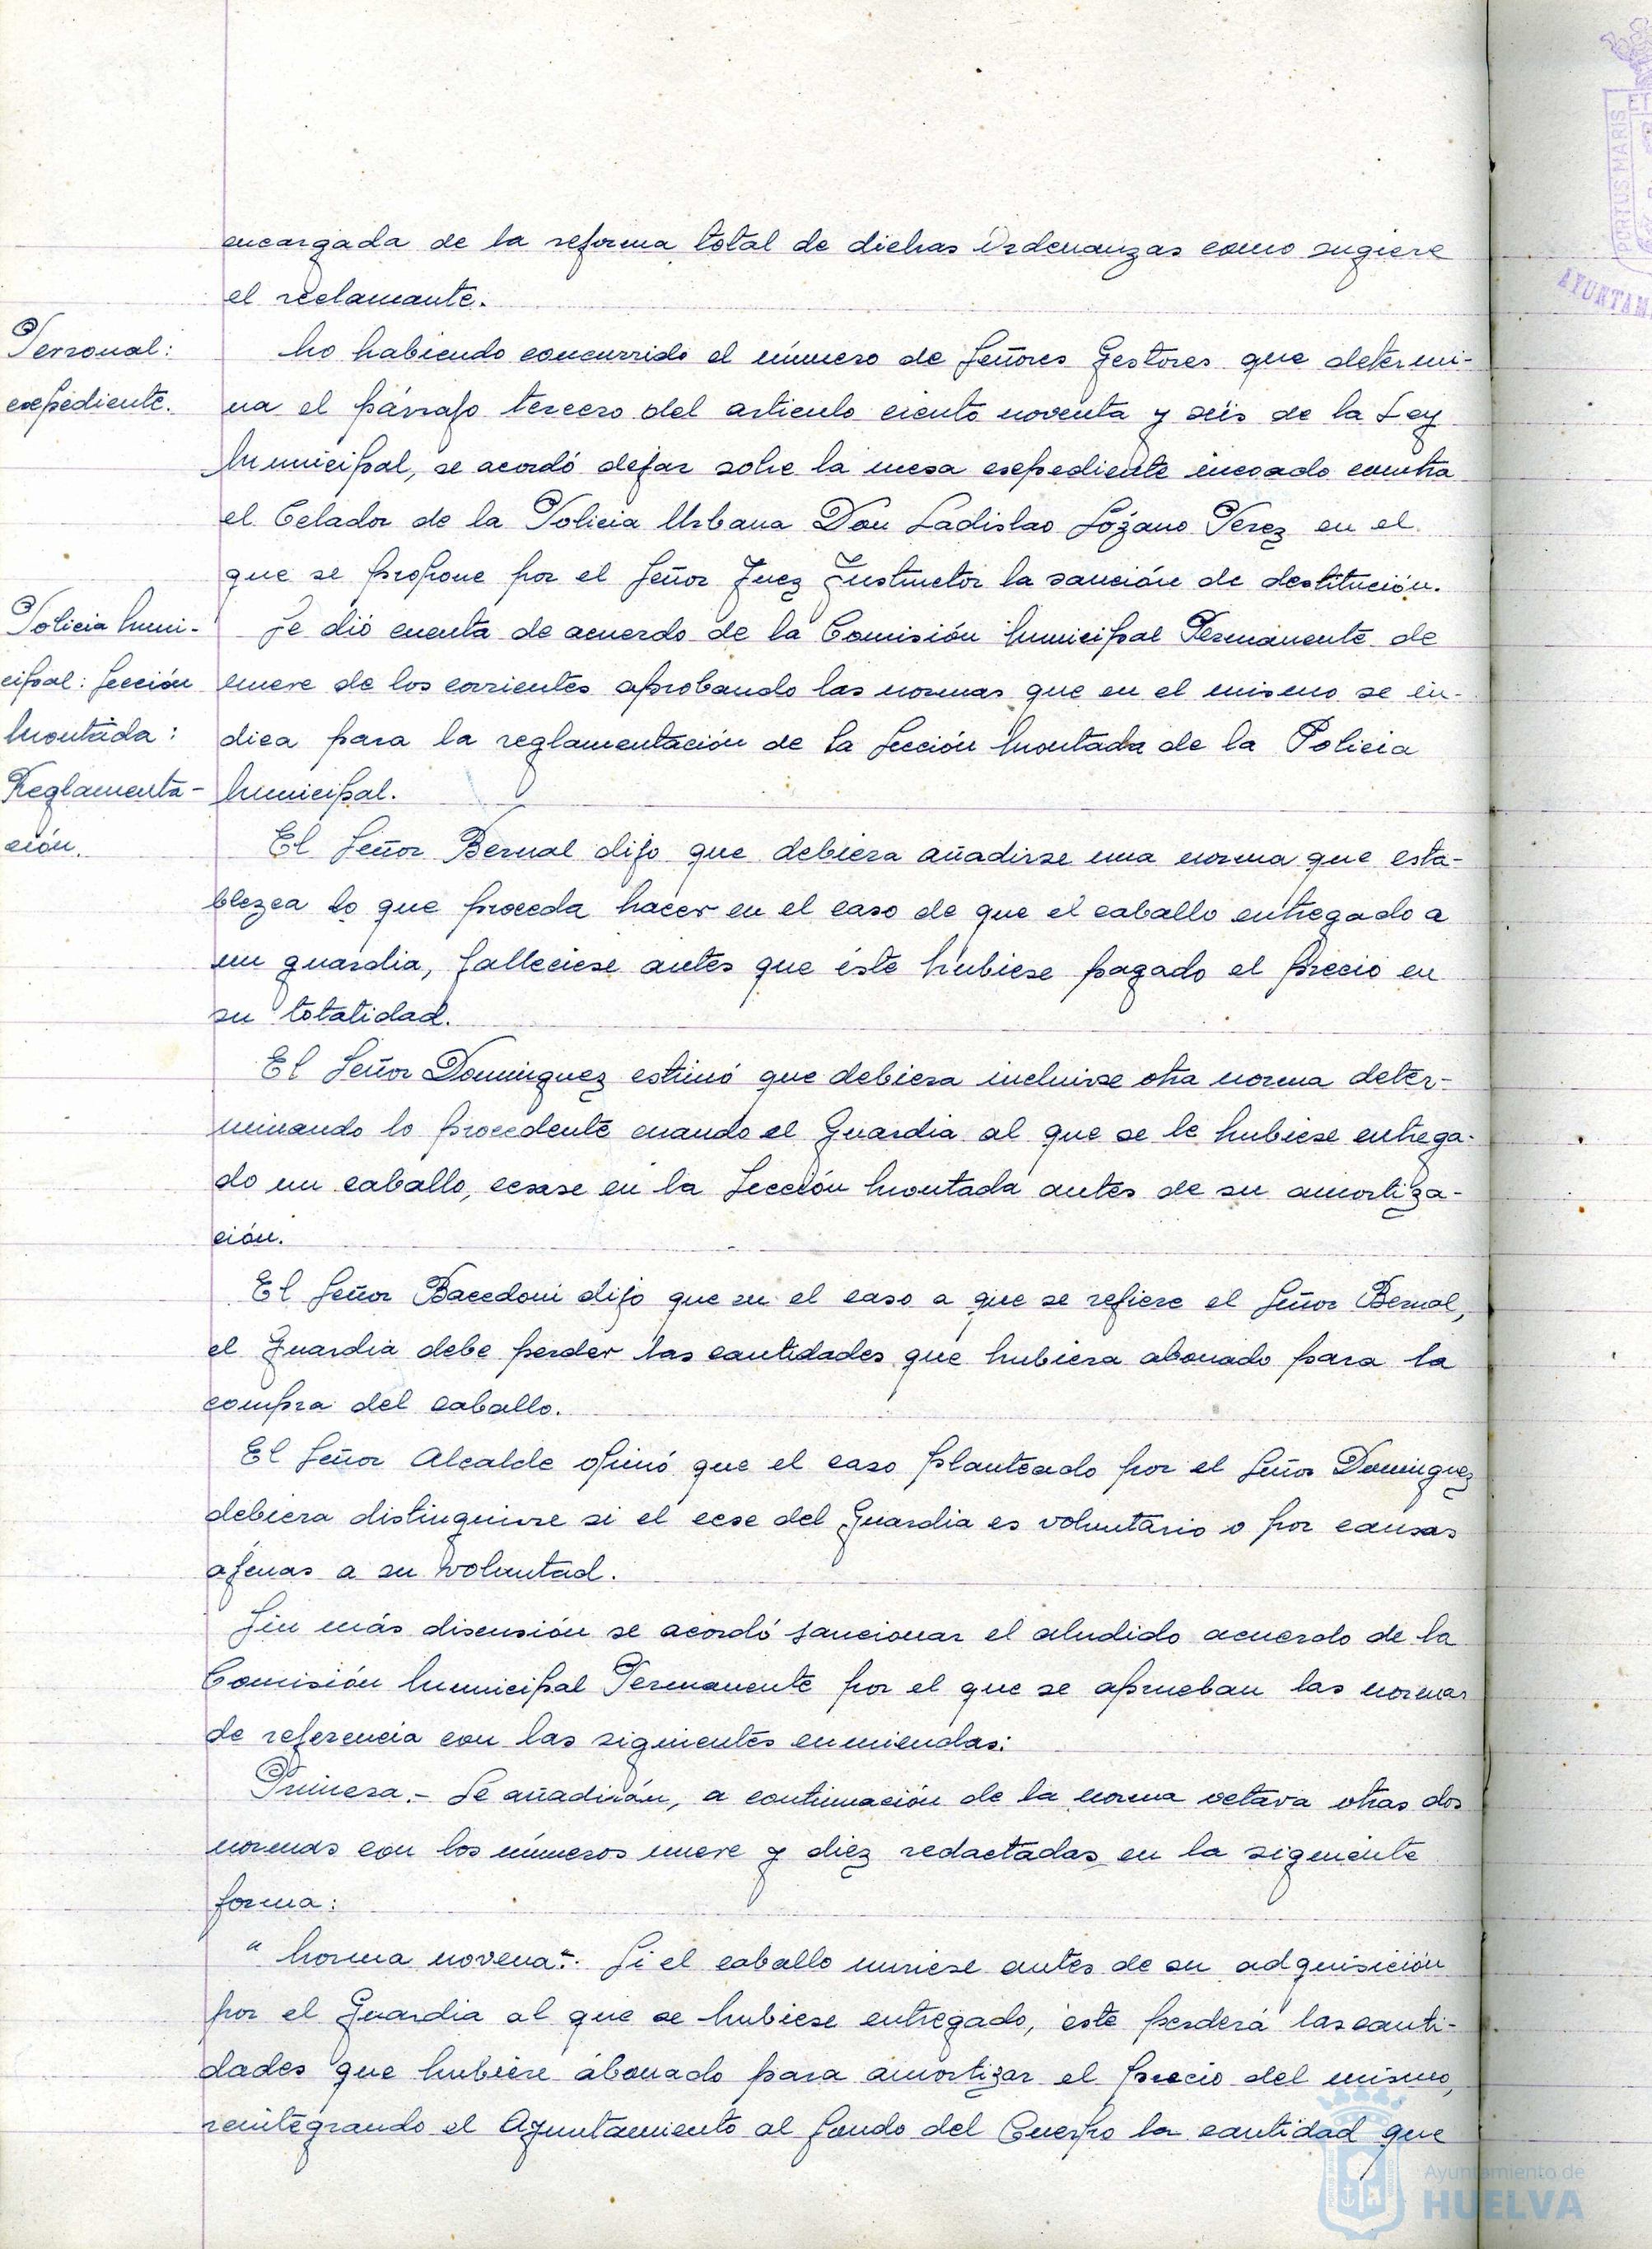 encargada de la reforma total de dichas Ordenanzas como sugiere
el reclamante.
Personal:
expediente.
No habiendo concurrido el número de Señores Gestores que determi-
na el párrafo tercero del articulo ciento noventa y seis de la Ley
Municipal, se acordó dejar sobre la mesa expediente incoado contra
el Celador de la Policia Urbana Don Ladislao Lozano Perez en el
que se propone por el Señor Juez Instructor la sanción de destitución.
Policia Muni-
cipal: Sección
Montada:
Reglamenta-
ción.
Se dió cuenta de acuerdo de la Comisión Municipal Permanente de
nueve de los corrientes aprobando las normas que en el mismo se in-
dica para la reglamentación de la Sección Montada de la Policia
Municipal.
El Señor Bernal dijo que debiera añadirse una norma que esta-
blezca lo que proceda hacer en el caso de que el caballo entregado a
un guardia, falleciese antes que éste hubiese pagado el precio en
su totalidad.
El Señor Dominguez estimó que debiera incluirse otra norma deter-
minando lo procedente cuando el Guardia al que se le hubiese entrega-
do un caballo, cesase en la Sección Montada antes de su amortiza-
ción.
El Señor Bacedoni dijo que en el caso a que se refiere el Señor Bernal,
el Guardia debe perder las cantidades que hubiera abonado para la
compra del caballo.
El Señor Alcalde opinó que el caso planteado por el Señor Dominguez
debiera distinguirse si el cese del Guardia es voluntario o por causas
ajenas a su voluntad.
Sin más discusión se acordó sancionar el aludido acuerdo de la
Comisión Municipal Permanente por el que se aprueban las normas
de referencia con las siguientes enmiendas:
Primera.- Se añadirán, a continuación de la norma octava otras dos
normas con los números nueve y diez redactadas en la siguiente
forma:
"Norma novena".- Si el caballo muriese antes de su adquisición
por el Guardia al que se hubiese entregado, éste perderá las canti-
dades que hubiere abonado para amortizar el precio del mismo,
reintegrando el Ayuntamiento al fondo del Cuerpo la cantidad que
PORTUS MARIS
ET
AYUNTAM
Ayuntamiento de
HUELVA